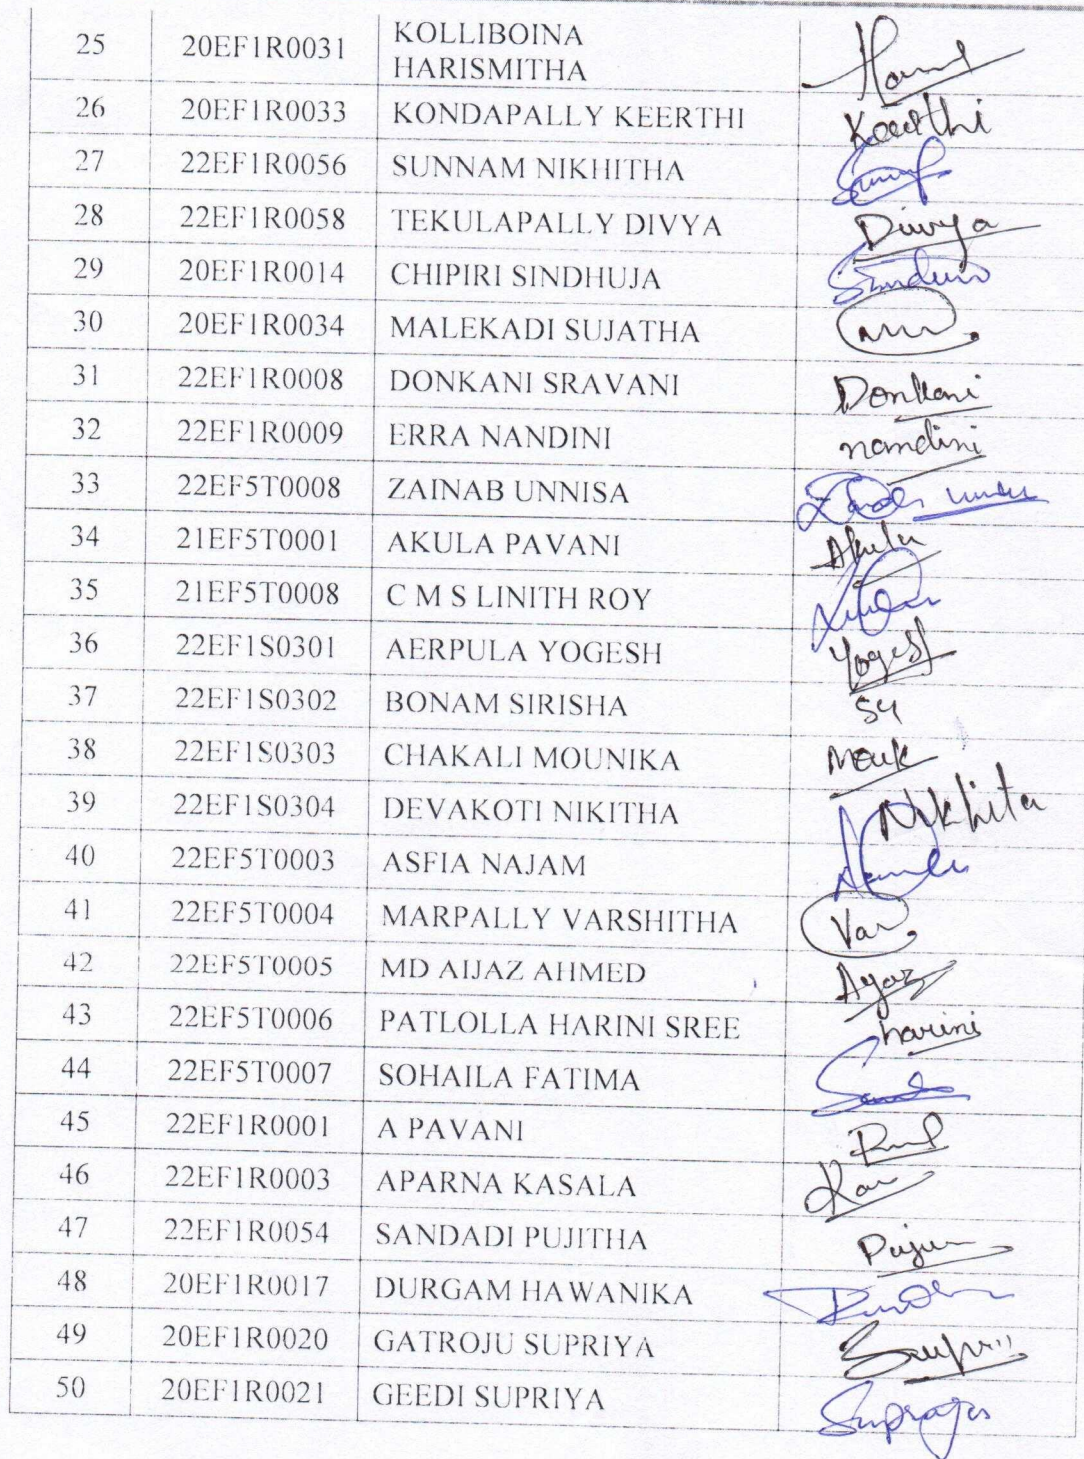 25 20EF1R0031 KOLLIBOINA
HARISMITHA
26 20EF1R0033 KONDAPALLY KEERTHI Keerthi
27 22EF1R0056 SUNNAM NIKHITHA
28 22EF1R0058 TEKULAPALLY DIVYA Divya
29 20EF1R0014 CHIPIRI SINDHUJA
30 20EF1R0034 MALEKADI SUJATHA
31 22EF1R0008 DONKANI SRAVANI Donkani
32 22EF1R0009 ERRA NANDINI nandini
33 22EF5T0008 ZAINAB UNNISA
34 21EF5T0001 AKULA PAVANI Akula
35 21EF5T0008 C M S LINITH ROY
36 22EF1S0301 AERPULA YOGESH Yogesh
37 22EF1S0302 BONAM SIRISHA
38 22EF1S0303 CHAKALI MOUNIKA
39 22EF1S0304 DEVAKOTI NIKITHA Nikhita
40 22EF5T0003 ASFIA NAJAM
41 22EF5T0004 MARPALLY VARSHITHA Var
42 22EF5T0005 MD AIJAZ AHMED Ayaz
43 22EF5T0006 PATLOLLA HARINI SREE harini
44 22EF5T0007 SOHAILA FATIMA
45 22EF1R0001 A PAVANI
46 22EF1R0003 APARNA KASALA
47 22EF1R0054 SANDADI PUJITHA
48 20EF1R0017 DURGAM HAWANIKA
49 20EF1R0020 GATROJU SUPRIYA
50 20EF1R0021 GEEDI SUPRIYA